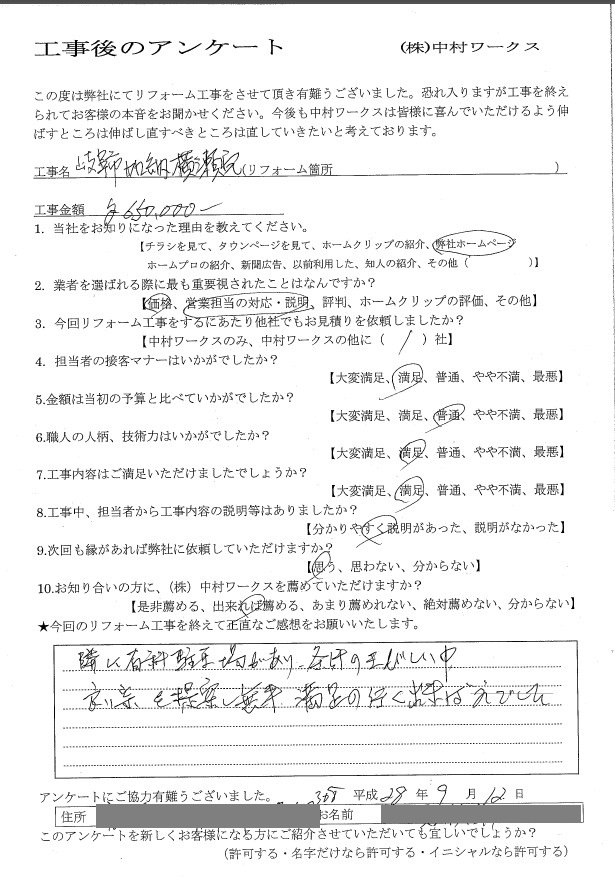 工事後のアンケート (株)中村ワークス
この度は弊社にてリフォーム工事をさせて頂き有難うございました。恐れ入りますが工事を終え
られてお客様の本音をお聞かせください。今後も中村ワークスは皆様に喜んでいただけるよう伸
ばすところは伸ばし直すべきところは直していきたいと考えております。
工事名 岐阜市加納 廣瀬邸(リフォーム箇所 )
工事金額 ¥650,000-
1. 当社をお知りになった理由を教えてください。
【チラシを見て、タウンページを見て、ホームクリップの紹介、弊社ホームページ
ホームプロの紹介、新聞広告、以前利用した、知人の紹介、その他( )】
2. 業者を選ばれる際に最も重要視されたことはなんですか?
【価格、営業担当の対応・説明、評判、ホームクリップの評価、その他】
3. 今回リフォーム工事をするにあたり他社でもお見積りを依頼しましたか?
【中村ワークスのみ、中村ワークスの他に( / )社】
4. 担当者の接客マナーはいかがでしたか?
【大変満足、満足、普通、やや不満、最悪】
5.金額は当初の予算と比べていかがでしたか?
【大変満足、満足、普通、やや不満、最悪】
6.職人の人柄、技術力はいかがでしたか?
【大変満足、満足、普通、やや不満、最悪】
7.工事内容はご満足いただけましたでしょうか?
【大変満足、満足、普通、やや不満、最悪】
8.工事中、担当者から工事内容の説明等はありましたか?
【分かりやすく説明があった、説明がなかった】
9.次回も縁があれば弊社に依頼していただけますか?
【思う、思わない、分からない】
10.お知り合いの方に、(株)中村ワークスを薦めていただけますか?
【是非薦める、出来れば薦める、あまり薦めれない、絶対薦めない、分からない】
★今回のリフォーム工事を終えて正直なご感想をお願いいたします。
隣に有料駐車場があり、条件のきびしい中
良い案を提案し 満足の行く出来ばえでした
アンケートにご協力有難うございました。 平成28年9月12日
住所 お名前
このアンケートを新しくお客様になる方にご紹介させていただいても宜しいでしょうか?
(許可する・名字だけなら許可する・イニシャルなら許可する)